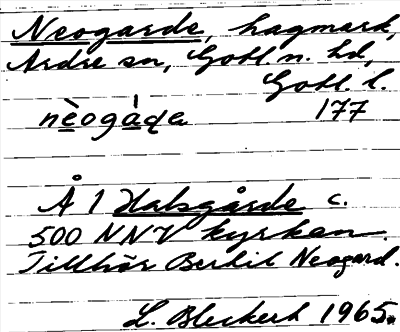 Neogarde, hagmark,
Ardre sn, Gotl. n. hd,
Gotl. l.
nèogáda 177
Å 1 Halsgårde c.
500 NNV kyrkan.
Tillhör Bertil Neogard.
L. Bleckert 1965.